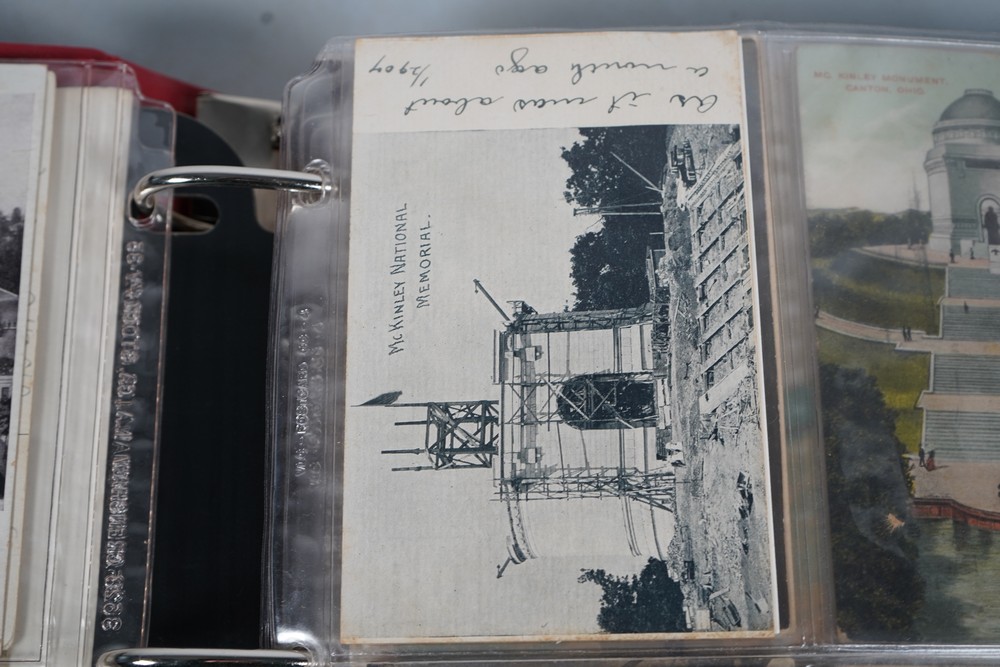 as it was about
a month ago
McKINLEY NATIONAL
MEMORIAL.
MC. KINLEY MONUMENT,
CANTON, OHIO.